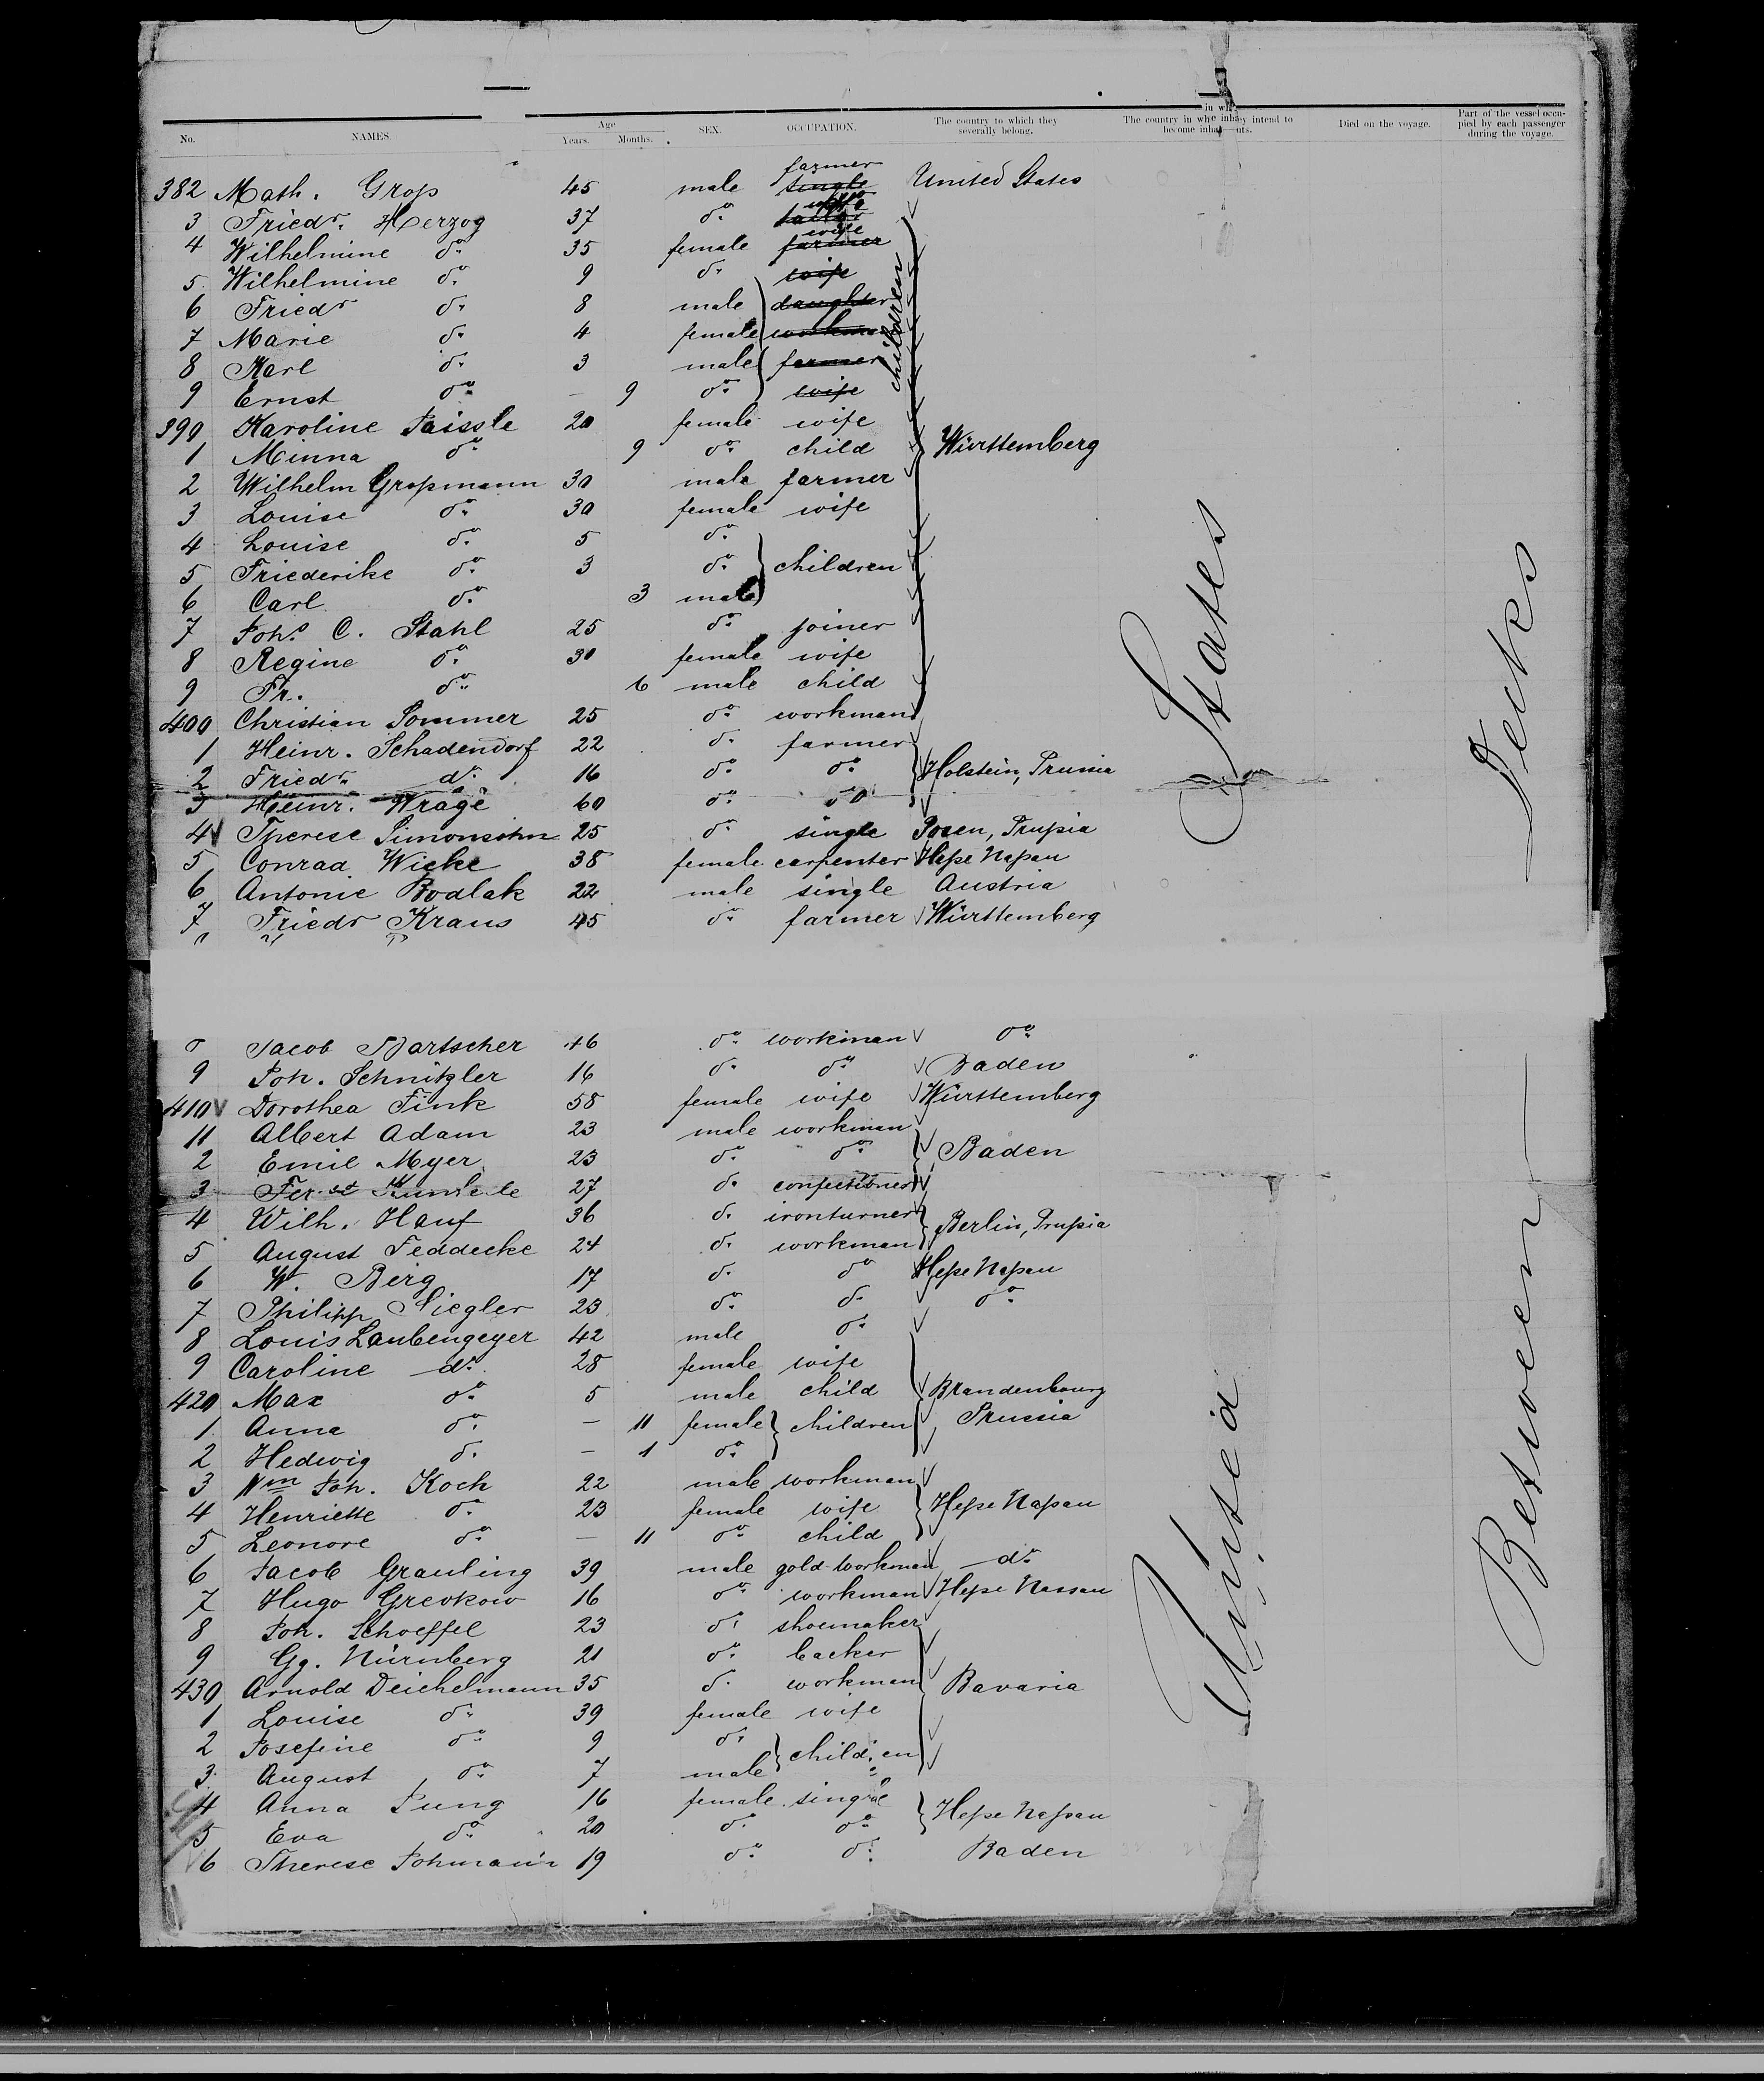 No. NAMES. Age Years. Months. SEX. OCCUPATION. The country to which they severally belong. The country in which they intend to become inhabitants. Died on the voyage. Part of the vessel occupied by each passenger during the voyage.
farmer
382 Math. Groſs 45 male single United States
3 Friedr. Herzog 37 do.
wife
4 Wilhelmine do. 35 female farmer
5 Wilhelmine do. 9 do. wife
6 Friedr do. 8 male daughter children
7 Marie do. 4 female workman
8 Karl do. 3 male farmer
9 Ernst do. — 9 do. wife
390 Karoline Paissle 20 female wife
1 Minna do. 9 do. child Württemberg
2 Wilhelm Groſsmann 30 male farmer
3 Louise do. 30 female wife
4 Louise do. 5 do.
5 Friederike do. 3 do. children
6 Carl do. 3 male
7 Johs. C. Stahl 25 do. joiner
8 Regine do. 30 female wife
9 Fr. do. 6 male child
400 Christian Sommer 25 do. workman
1 Heinr. Schadendorf 22 do. farmer
2 Friedr. do. 16 do. do. Holstein, Prussia
3 Heinr. Wrage 60 do. do
4 Therese Simonsohn 25 do. single Posen, Pruſsia
5 Conrad Wicke 38 female carpenter Heſse Naſsau
6 Antonie Bodlak 22 male single Austria
7 Friedr Kraus 45 do. farmer Württemberg
8 Jacob Bartscher 46 do. workman do.
9 Joh. Schnitzler 16 do. do. Baden
410 Dorothea Fink 58 female wife Württemberg
11 Albert Adam 23 male workman
2 Emil Myer 23 do. do. Baden
3 27 do. confectioner
4 Wilh. Hauf 36 do. ironturner Berlin, Pruſsia
5 August Feddecke 24 do. workman
6 W. Berg 17 do. do Heſse Naſsau
7 Philipp Siegler 23 do. do. do.
8 Louis Laubengeyer 42 male do.
9 Caroline do. 28 female wife
420 Max do. 5 male child Brandenbourg
1 Anna do. — 11 female children Prussia
2 Hedwig do. — 1 do.
3 Wm Joh. Koch 22 male workman
4 Henriette do. 23 female wife Heſse Naſsau
5 Leonore do. — 11 do. child
6 Jacob Grauling 39 male gold-workman do.
7 Hugo Grevkow 16 do. workman Heſse Nassau
8 Joh. Schoeffel 23 do. shoemaker
9 Gg. Nürnberg 21 do. backer
430 Arnold Deichelmann 35 do. workman Bavaria
1 Louise do. 39 female wife
2 Josefine do. 9 do. children
3 August do. 7 male
4 Anna Jung 16 female single Heſse Naſsau
5 Eva do. 20 do. do.
6 Therese Johmann 19 do. do. Baden
United States
Between Decks